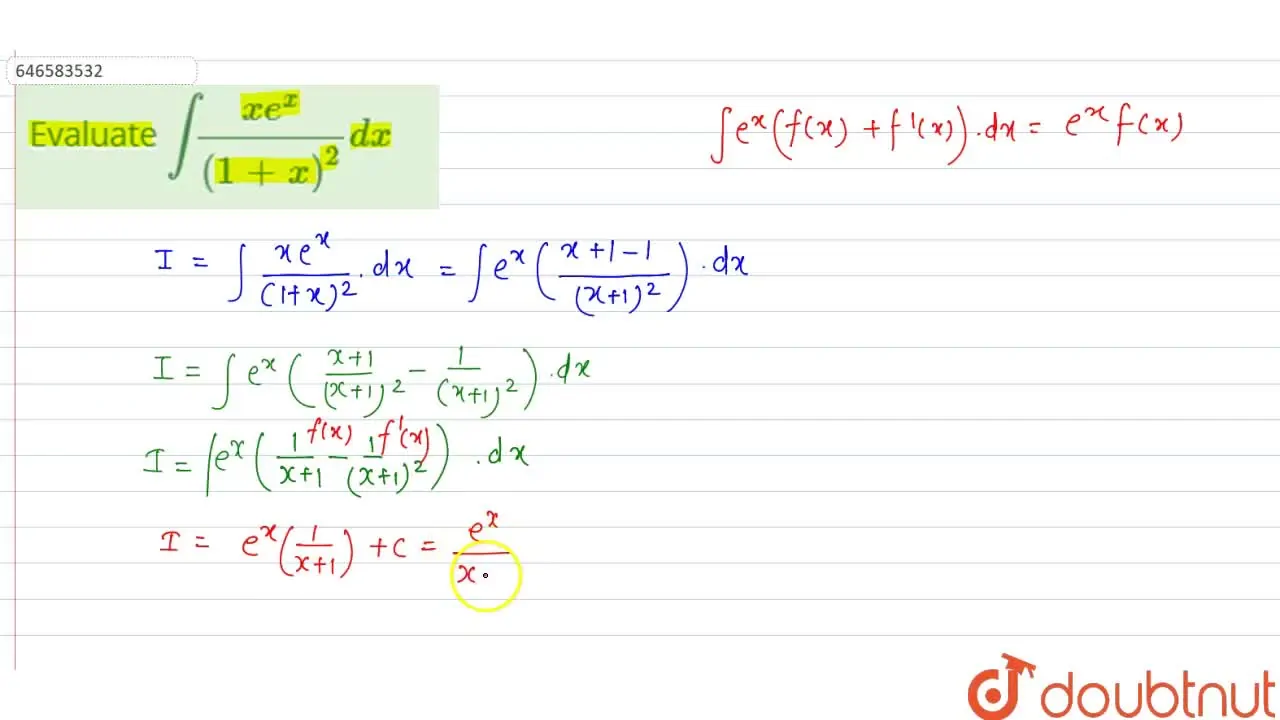 646583532
Evaluate ∫ xeˣ/(1 + x)² dx
∫eˣ(f(x) + f'(x)).dx = eˣ f(x)
I = ∫ xeˣ/(1+x)² . dx = ∫eˣ((x+1-1)/(x+1)²) . dx
I = ∫ eˣ((x+1)/(x+1)² - 1/(x+1)²) . dx
f(x) f'(x)
I = ∫eˣ(1/(x+1) - 1/(x+1)²) . dx
I = eˣ(1/(x+1)) + c = eˣ/x
doubtnut